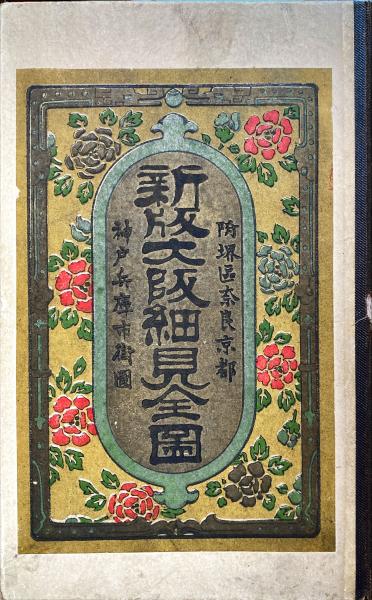 附堺區奈良京都
新版大阪細見全圖
神戸兵庫市街圖